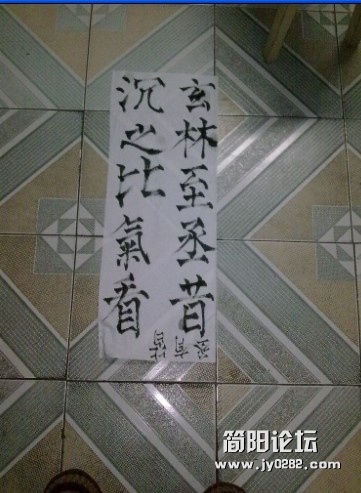 玄林至丞昔
沉之比氣看
简阳论坛
www.jy0282.com